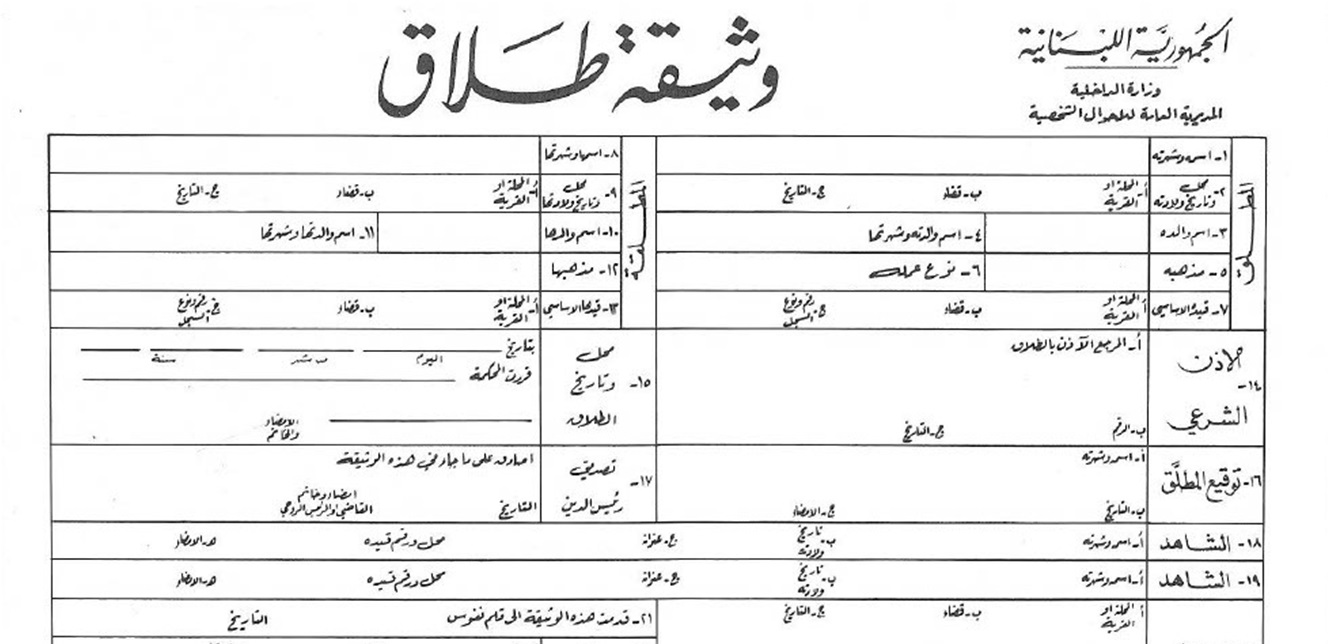 الجمهورية اللبنانية
وزارة الداخلية
المديرية العامة للاحوال الشخصية
وثيقة طلاق
المطلق
١- اسمه وشهرته
٢- محل وتاريخ ولادته أ- المحلة او القرية ب- قضاء ج- التاريخ
٣- اسم والده ٤- اسم والدته وشهرتها
٥- مذهبه ٦- نوع عمله
٧- قيده الاساسي أ- المحلة او القرية ب- قضاء ج- رقم ونوع السجل
المطلقة
٨- اسمها وشهرتها
٩- محل وتاريخ ولادتها أ- المحلة او القرية ب- قضاء ج- التاريخ
١٠- اسم والدها ١١- اسم والدتها وشهرتها
١٢- مذهبها
١٣- قيدها الاساسي أ- المحلة او القرية ب- قضاء ج- رقم ونوع السجل
١٤- الاذن الشرعي
أ- المرجع الآذن بالطلاق
ب- الرقم ج- التاريخ
١٥- محل وتاريخ الطلاق
بتاريخ اليوم شهر سنة
قررت المحكمة
الامضاء والخاتم
١٦- توقيع المطلّق
أ- اسمه وشهرته
ب- التاريخ ج- الامضاء
١٧- تصديق رئيس الدين
اصادق على ما جاء في هذه الوثيقة
التاريخ امضاء وخاتم القاضي او الرئيس الروحي
١٨- الشاهد أ- اسمه وشهرته ب- تاريخ ولادته ج- عنوانه محل ورقم قيده هـ- الامضاء
١٩- الشاهد أ- اسمه وشهرته ب- تاريخ ولادته ج- عنوانه محل ورقم قيده هـ- الامضاء
أ- المحلة او القرية ب- قضاء ج- التاريخ
٢١- قدمت هذه الوثيقة الى قلم نفوس التاريخ